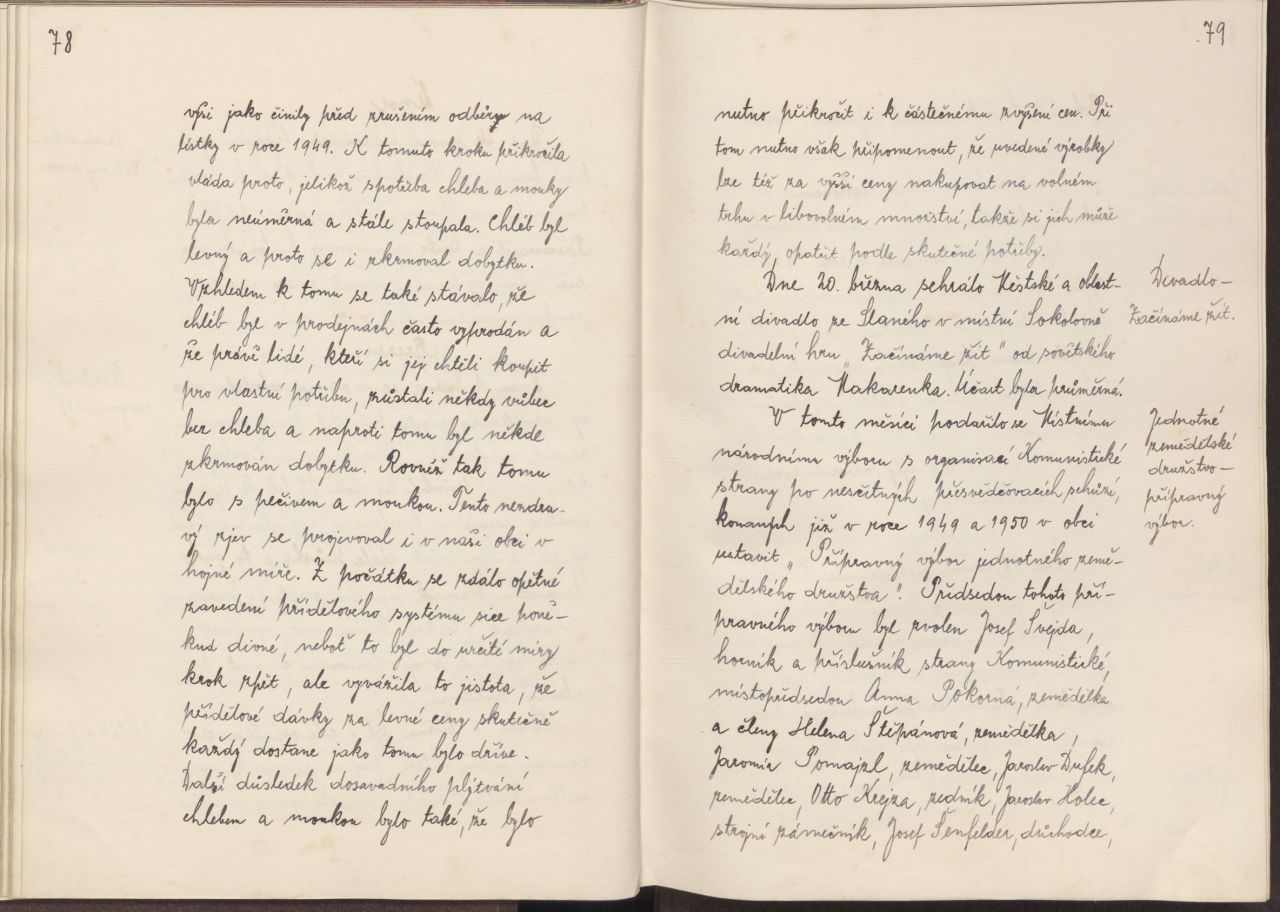 78
výši jako činily před zrušením odběru na
lístky v roce 1949. K tomuto kroku přikročila
vláda proto, jelikož spotřeba chleba a mouky
byla neúměrná a stále stoupala. Chléb byl
levný a proto se i zkrmoval dobytku.
Vzhledem k tomu se také stávalo, že
chléb byl v prodejnách často vyprodán a
že právě lidé, kteří si jej chtěli koupit
pro vlastní potřebu, zůstali někdy vůbec
bez chleba a naproti tomu byl někde
zkrmován dobytku. Rovněž tak tomu
bylo s pečivem a moukou. Tento nezdra-
vý zjev se projevoval i v naší obci v
hojné míře. Z počátku se zdálo opětné
zavedení přídělového systému sice poně-
kud divné, neboť to byl do určité míry
krok zpět, ale vyvážila to jistota, že
přídělové dávky za levné ceny skutečně
každý dostane jako tomu bylo dříve.
Další důsledek dosavadního plýtvání
chlebem a moukou bylo také, že bylo
79
nutno přikročit i k částečnému zvýšení cen. Při
tom nutno však připomenout, že uvedené výrobky
lze též za vyšší ceny nakupovat na volném
trhu v libovolném množství, takže si jich může
každý opatřit podle skutečné potřeby.
Dne 20. března sehrálo Městské a oblast-
ní divadlo ze Slaného v místní Sokolovně
divadelní hru „Začínáme žít" od sovětského
dramatika Makarenka. Účast byla průměrná.
Divadlo-
Začínáme žít.
V tomto měsíci podařilo se Místnímu
národnímu výboru s organisací Komunistické
strany po nesčitných přesvědčovacích schůzí,
konaných již v roce 1949 a 1950 v obci
ustavit „Přípravný výbor jednotného země-
dělského družstva". Předsedou tohoto pří-
pravného výboru byl zvolen Josef Švejda,
horník a příslušník strany Komunistické,
místopředsedou Anna Pokorná, zemědělka
a členy Helena Štěpánová, zemědělka,
Jaromír Pomajzl, zemědělec, Jaroslav Dufek,
zemědělec, Otto Krejza, zedník, Jaroslav Holec,
strojní zámečník, Josef Šenfelder, důchodce,
Jednotné
zemědělské
družstvo-
přípravný
výbor.